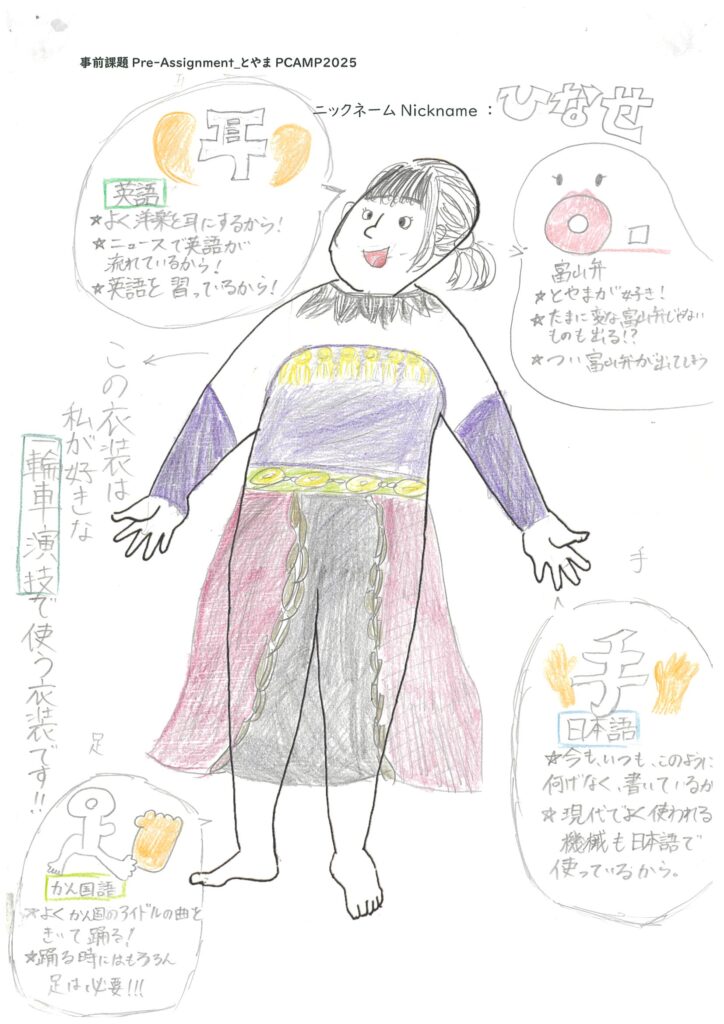 事前課題 Pre-Assignment_とやま PCAMP2025
ニックネーム Nickname ：ひなせ
耳
英語
★よく洋楽を耳にするから!
★ニュースで英語が
流れているから!
★英語を習っているから!
富山弁
★とやまが好き!
★たまに変な富山弁じゃない
ものも出る!?
★つい富山弁が出てしまう
この衣装は
私が好きな
一輪車演技で使う衣装です!!
手
手
日本語
★今も、いつも、このように
何げなく、書いているか
★現代でよく使われる
機械も日本語で
使っているから。
足
かん国語
★よくかん国のアイドルの曲を
きいて踊る!
★踊る時にはもちろん
足は必要!!!